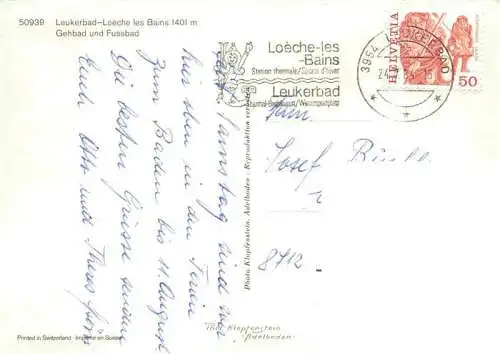 50939 Leukerbad-Loèche les Bains 1401 m
Gehbad und Fussbad
Loèche-les
-Bains
Station thermale/Sports d'hiver
Leukerbad
Thermal-Badekurort/Wintersportplatz
3954 LEUKERBAD
HELVETIA
50
Samstag sind wir
hier oben in den Ferien
zum Baden bis 11. August
Die besten Grüsse senden
Euch Otto und
Josef
8712
Photo Klopfenstein, Adelboden - Reproduktion verboten
Printed in Switzerland Imprimé en Suisse
Phot Klopfenstein
Adelboden